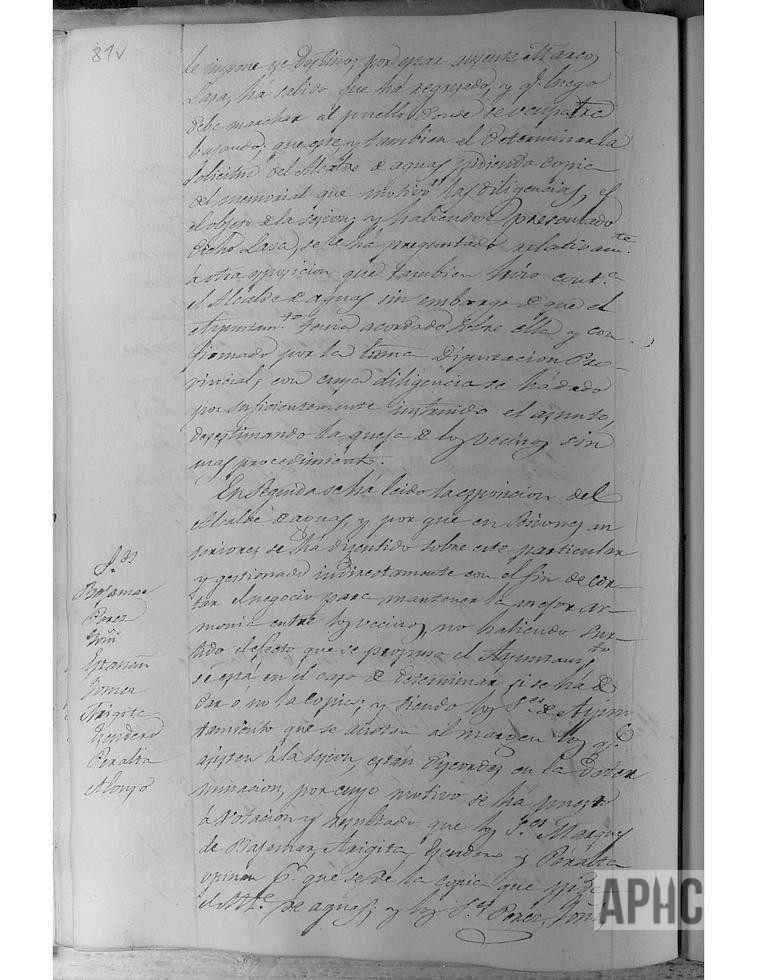 81v
le impone ese destino; por estar ausente Marco,
Lasa, ha sabido que há regresado, y q.e luego
debe marchar al pueblo donde se ocupa tra
bajando; que este, y tambien el determinar la
solicitud del Alcalde de aguas pidiendo copia
del memorial que motivó las diligencias, es
el objeto de la sesion; y habiendose presentado
dicho Lasa, se le há preguntado relativam.te
á otra esposicion que tambien hizo cont.a
el Alcalde de aguas sin embargo de que el
Ayuntam.to tenia acordado sobre ella y con
firmado por la Exma Diputacion Pro-
vincial; con cuya diligencia se há dado
por suficientemente instruido el asunto,
desestimando la queja de los vecinos sin
mas procedimiento.
En seguida se há leido la esposicion del
Alcalde de aguas, y por que en sesiones an
teriores se há discutido sobre este particular
y gestionado indirectamente con el fin de cor-
tar el negocio para mantener la mejor ar-
monia entre los vecinos, no habiendo sur-
tido el efecto que se propuso el Ayuntam.to
se está en el caso de determinar si se há de
dar ó no la copia; y siendo los S.res de Ayun
tamiento que se anotan al margen los q.e
asisten á la sesion, están discordes en la deter
minacion, por cuyo motivo se há puesto
á votacion y resultado que los S.res Marques
de Bajamar, Arigita, Escudero y Peralta
opinan p.r que se dé la copia que pide
el Alc.e de aguas; y los S.res Perez, Goñi
S.res
Bajamar
Perez
Goñi
Gomez
Arigita
Escudero
Peralta
Alonso
APHC